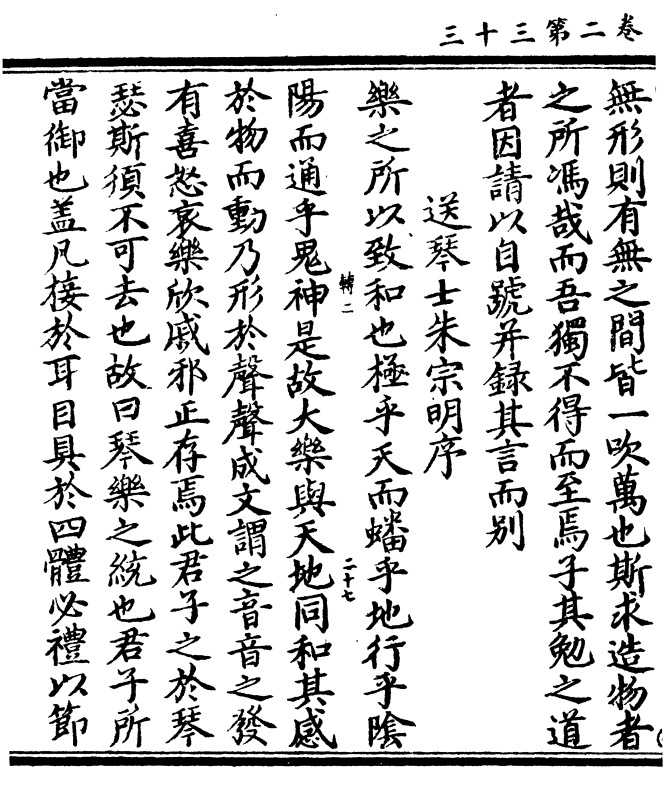 卷二第三十三
無形則有無之間皆一吹萬也斯求造物者
之所馮哉而吾獨不得而至焉子其勉之道
者因請以自號并録其言而别
送琴士朱宗明序
樂之所以致和也極乎天而蟠乎地行乎陰
陽而通乎鬼神是故大樂與天地同和其感
轉二
二十七
於物而動乃形於聲聲成文謂之音音之發
有喜怒哀樂欣戚邪正存焉此君子之於琴
瑟斯須不可去也故曰琴樂之統也君子所
當御也盖凡接於耳目具於四體必禮以節